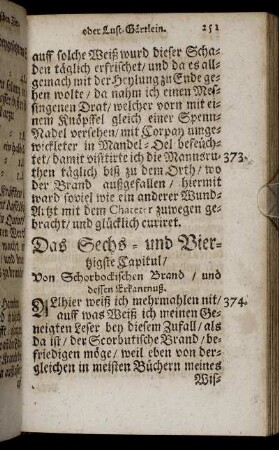 oder Lust-Gärtlein. 251
auff solche Weiß wurd dieser Scha-
den täglich erfrischet/ und da es all-
gemach mit der Heylung zu Ende ge-
hen wolte/ da nahm ich einen Mes-
singenen Drat/ welcher vorn mit ei-
nem Knöpffel gleich einer Spenn-
Nadel versehen/ mit Corpay umge-
wickleter in Mandel-Oel beseuch-
tet/ damit visitirte ich die Mannsru- 373.
then täglich biß zu dem Orth/ wo
der Brand außgefallen/ hiermit
ward soviel wie ein anderer Wund-
Artzt mit dem Chaceter zuwegen ge-
bracht/ und glücklich curiret.
Das Sechs- und Vier-
tzigste Capitul/
Von Schorbockischen Brand/ und
dessen Erkantnuß.
ALlhier weiß ich mehrmahlen nit/ 374.
auff was Weiß ich meinen Ge-
neigten Leser bey diesem Zufall/ als
da ist/ der Scorbutische Brand/ be-
friedigen möge/ weil eben von der-
gleichen in meisten Büchern meines
Wis-